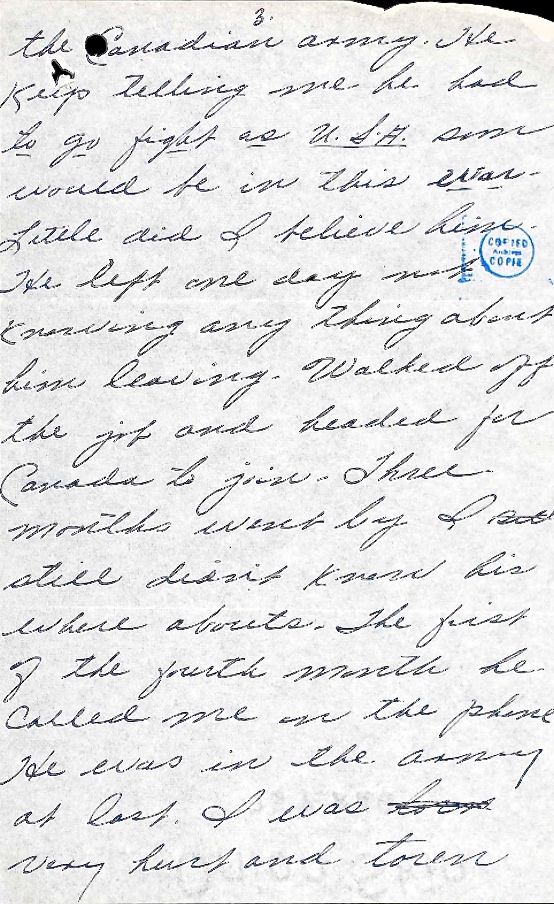 3.
the Canadian army. He
Keep telling me he had
to go fight as U.S.A. soon
would be in this war.
Little did I believe him.
COPIED
COPIE
He left one day not
knowing any thing about
him leaving. Walked off
the job and headed for
Canada to join. Three
months went by I
still didn't know his
where abouts. The first
of the fourth month he
called me on the phone
He was in the army
at last. I was
very hurt and toren